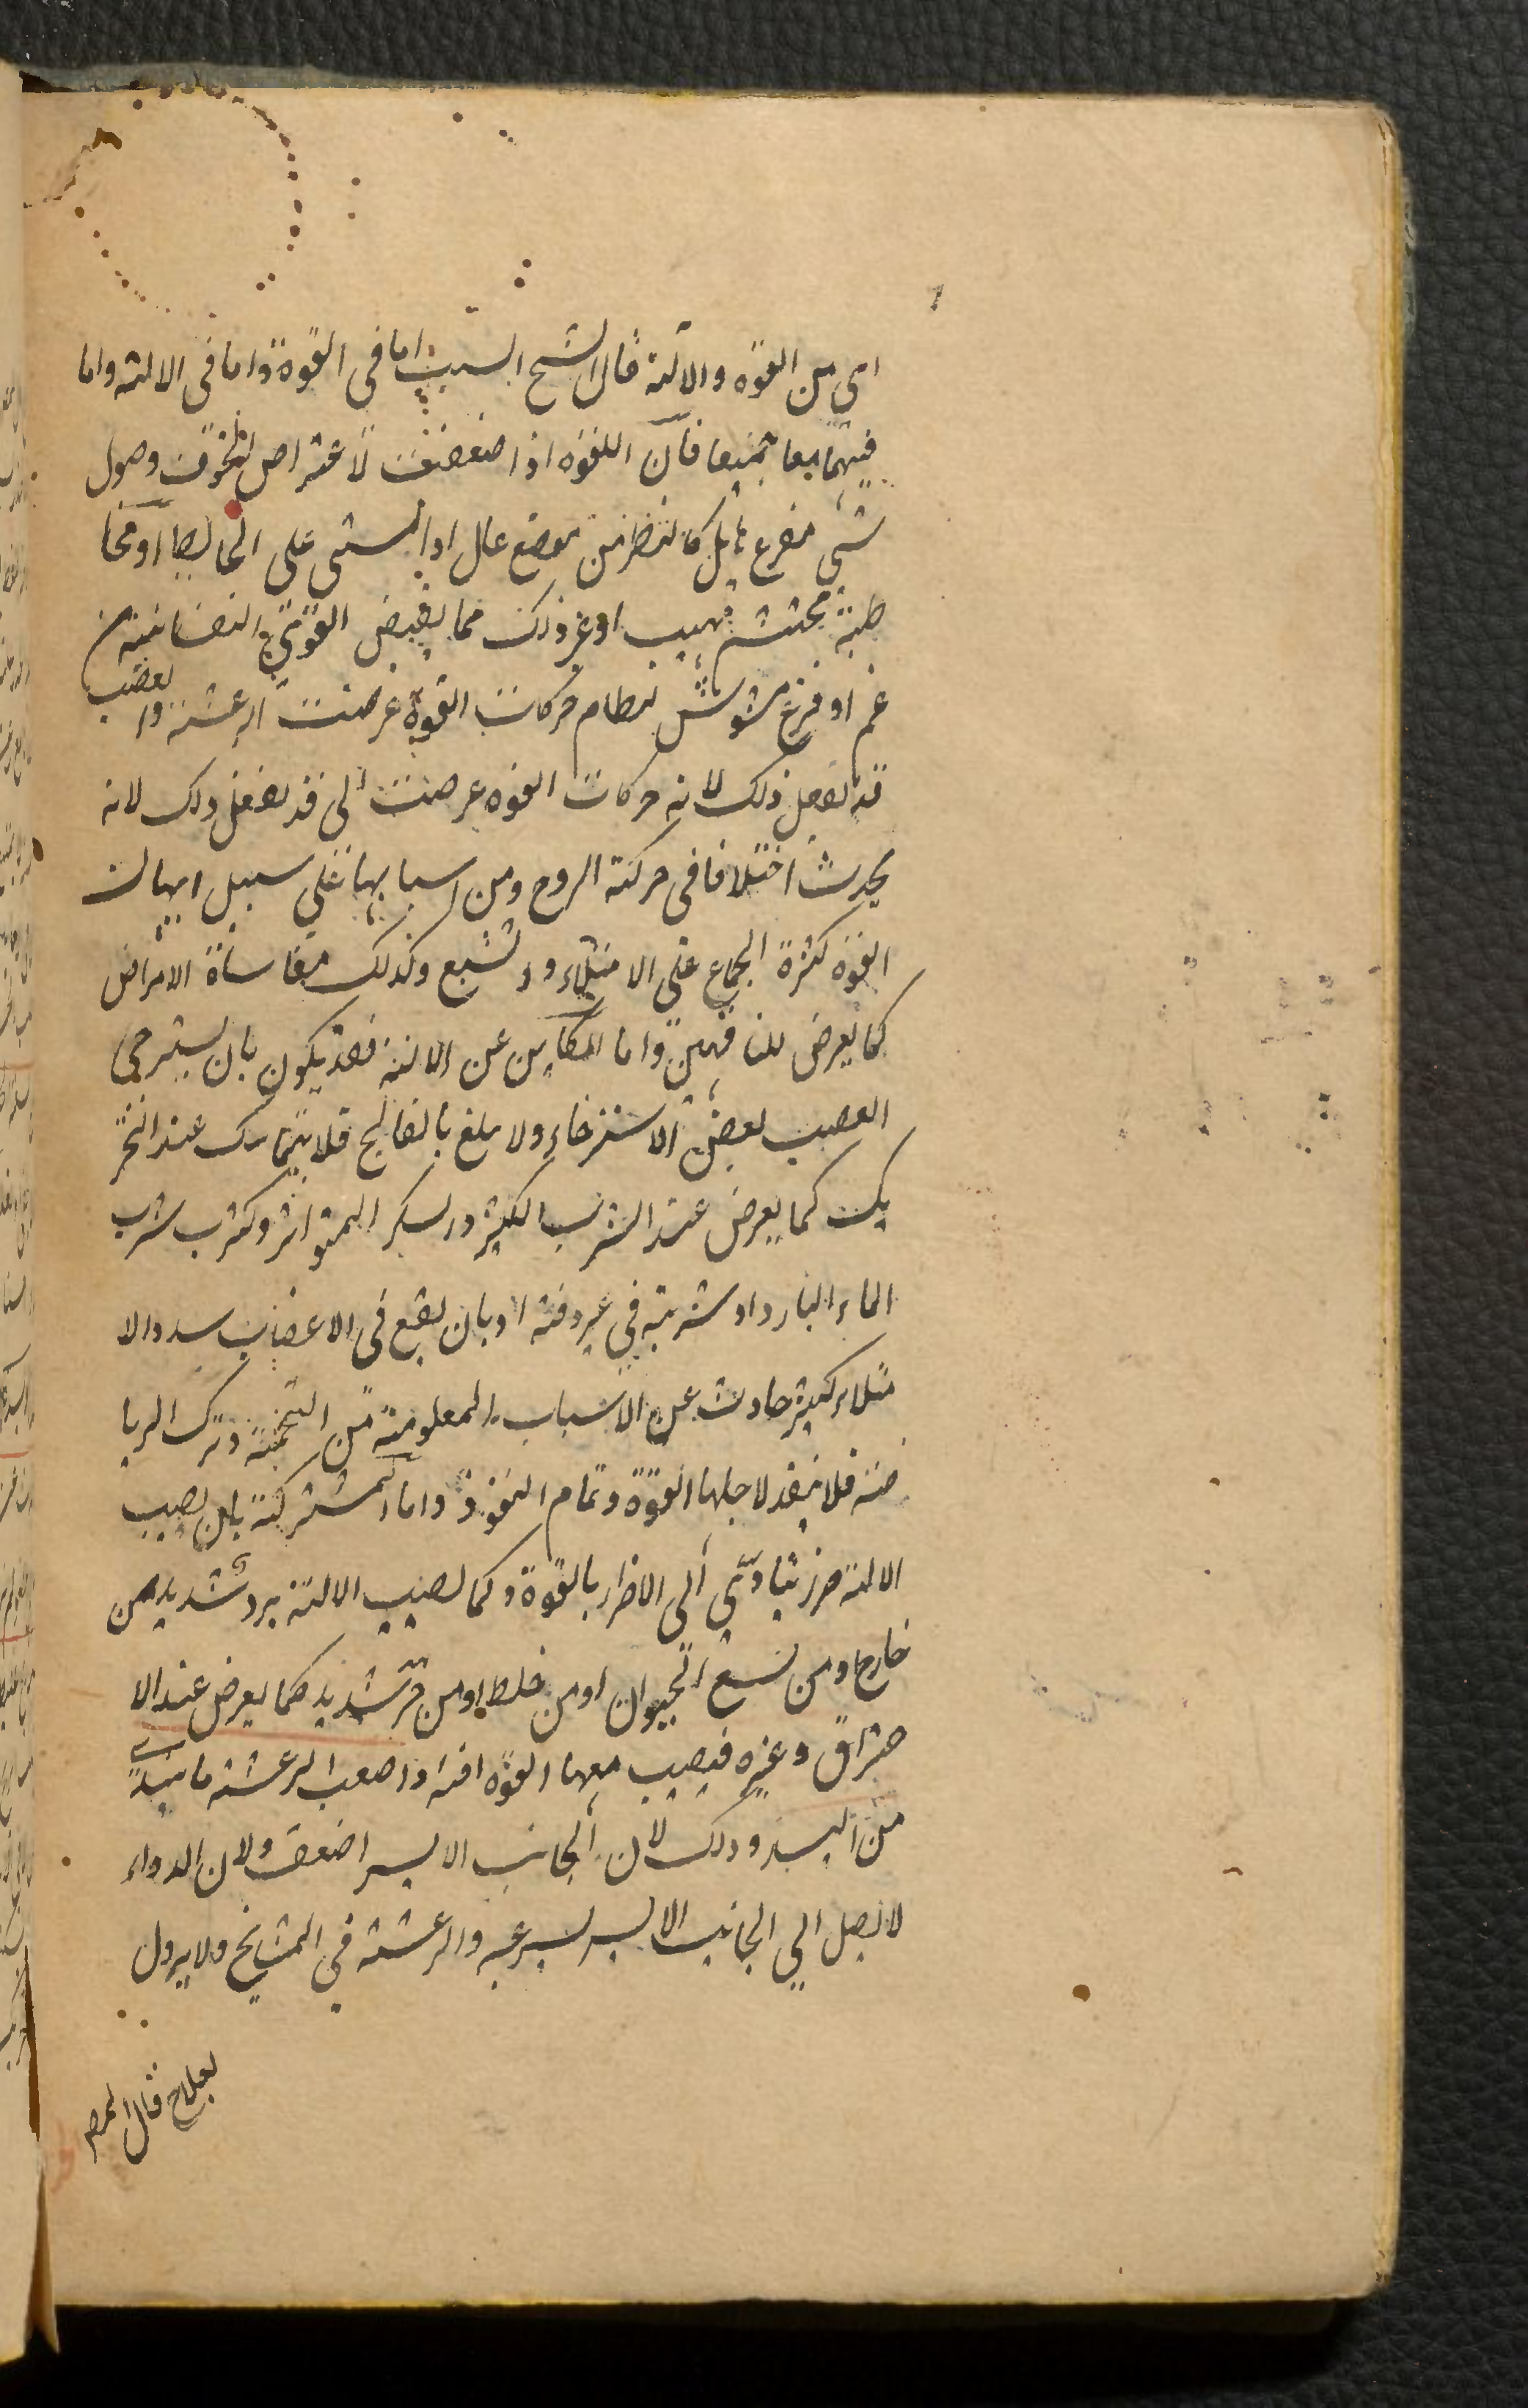 اى من القوة والآلة قال الشيخ السبب اما فى القوة واما فى الالة واما
فيهما معا جميعا فان القوة اذا ضعفت لاعتراض الخوف وصول
شئ مفزع هايل كالنظر من موضع عال او المشى على الحايط او مخا
طبة محتشم مهيب او غير ذلك مما يقبض القوى النفسانية من
غم او فزع مشوش لنظام حركات القوة عرضت الرعشة والغضب
قد يفعل ذلك لانه حركات القوة عرضت الى قد يفعل ذلك لانه
يحدث اختلافا فى حركة الروح ومن اسبابها على سبيل ايهان
القوة كثرة الجماع على الامتلاء والشبع وكذلك مقاساة الامراض
كما يعرض للناقهين واما الكاين عن الالة فقد يكون بان يسترخى
العصب بعض الاسترخاء ولا يبلغ بالفالج فلا يتماسك عند التحر
يك كما يعرض عند الشرب الكثير والسكر المتواتر وكثرت شرب
الماء البارد او شربه فى غير وقته او بان يقع فى الاعضاب سدد الا
متلاء كثير حادث عن الاسباب المعلومة من التخمة وترك الريا
ضة فلا ينفذ لاجلها القوة وتمام النفوذ واما المشتركة بان يصيب
الالة ضرر يتادى الى الاضرار بالقوة وكما يصيب الالة برد شديد من
خارج او من لسع الحيوان او من خلط او من حر شديد كما يعرض عند الا
حتراق وغيره فيصيب معها القوة افة واصعب الرعشة ما يبتدى
من اليسر وذلك لان الجانب الايسر اضعف ولان الدواء
لا يصل الى الجانب الايسر بسرعة والرعشة فى المشايخ ولا يزول
بعلاج قال المصـ